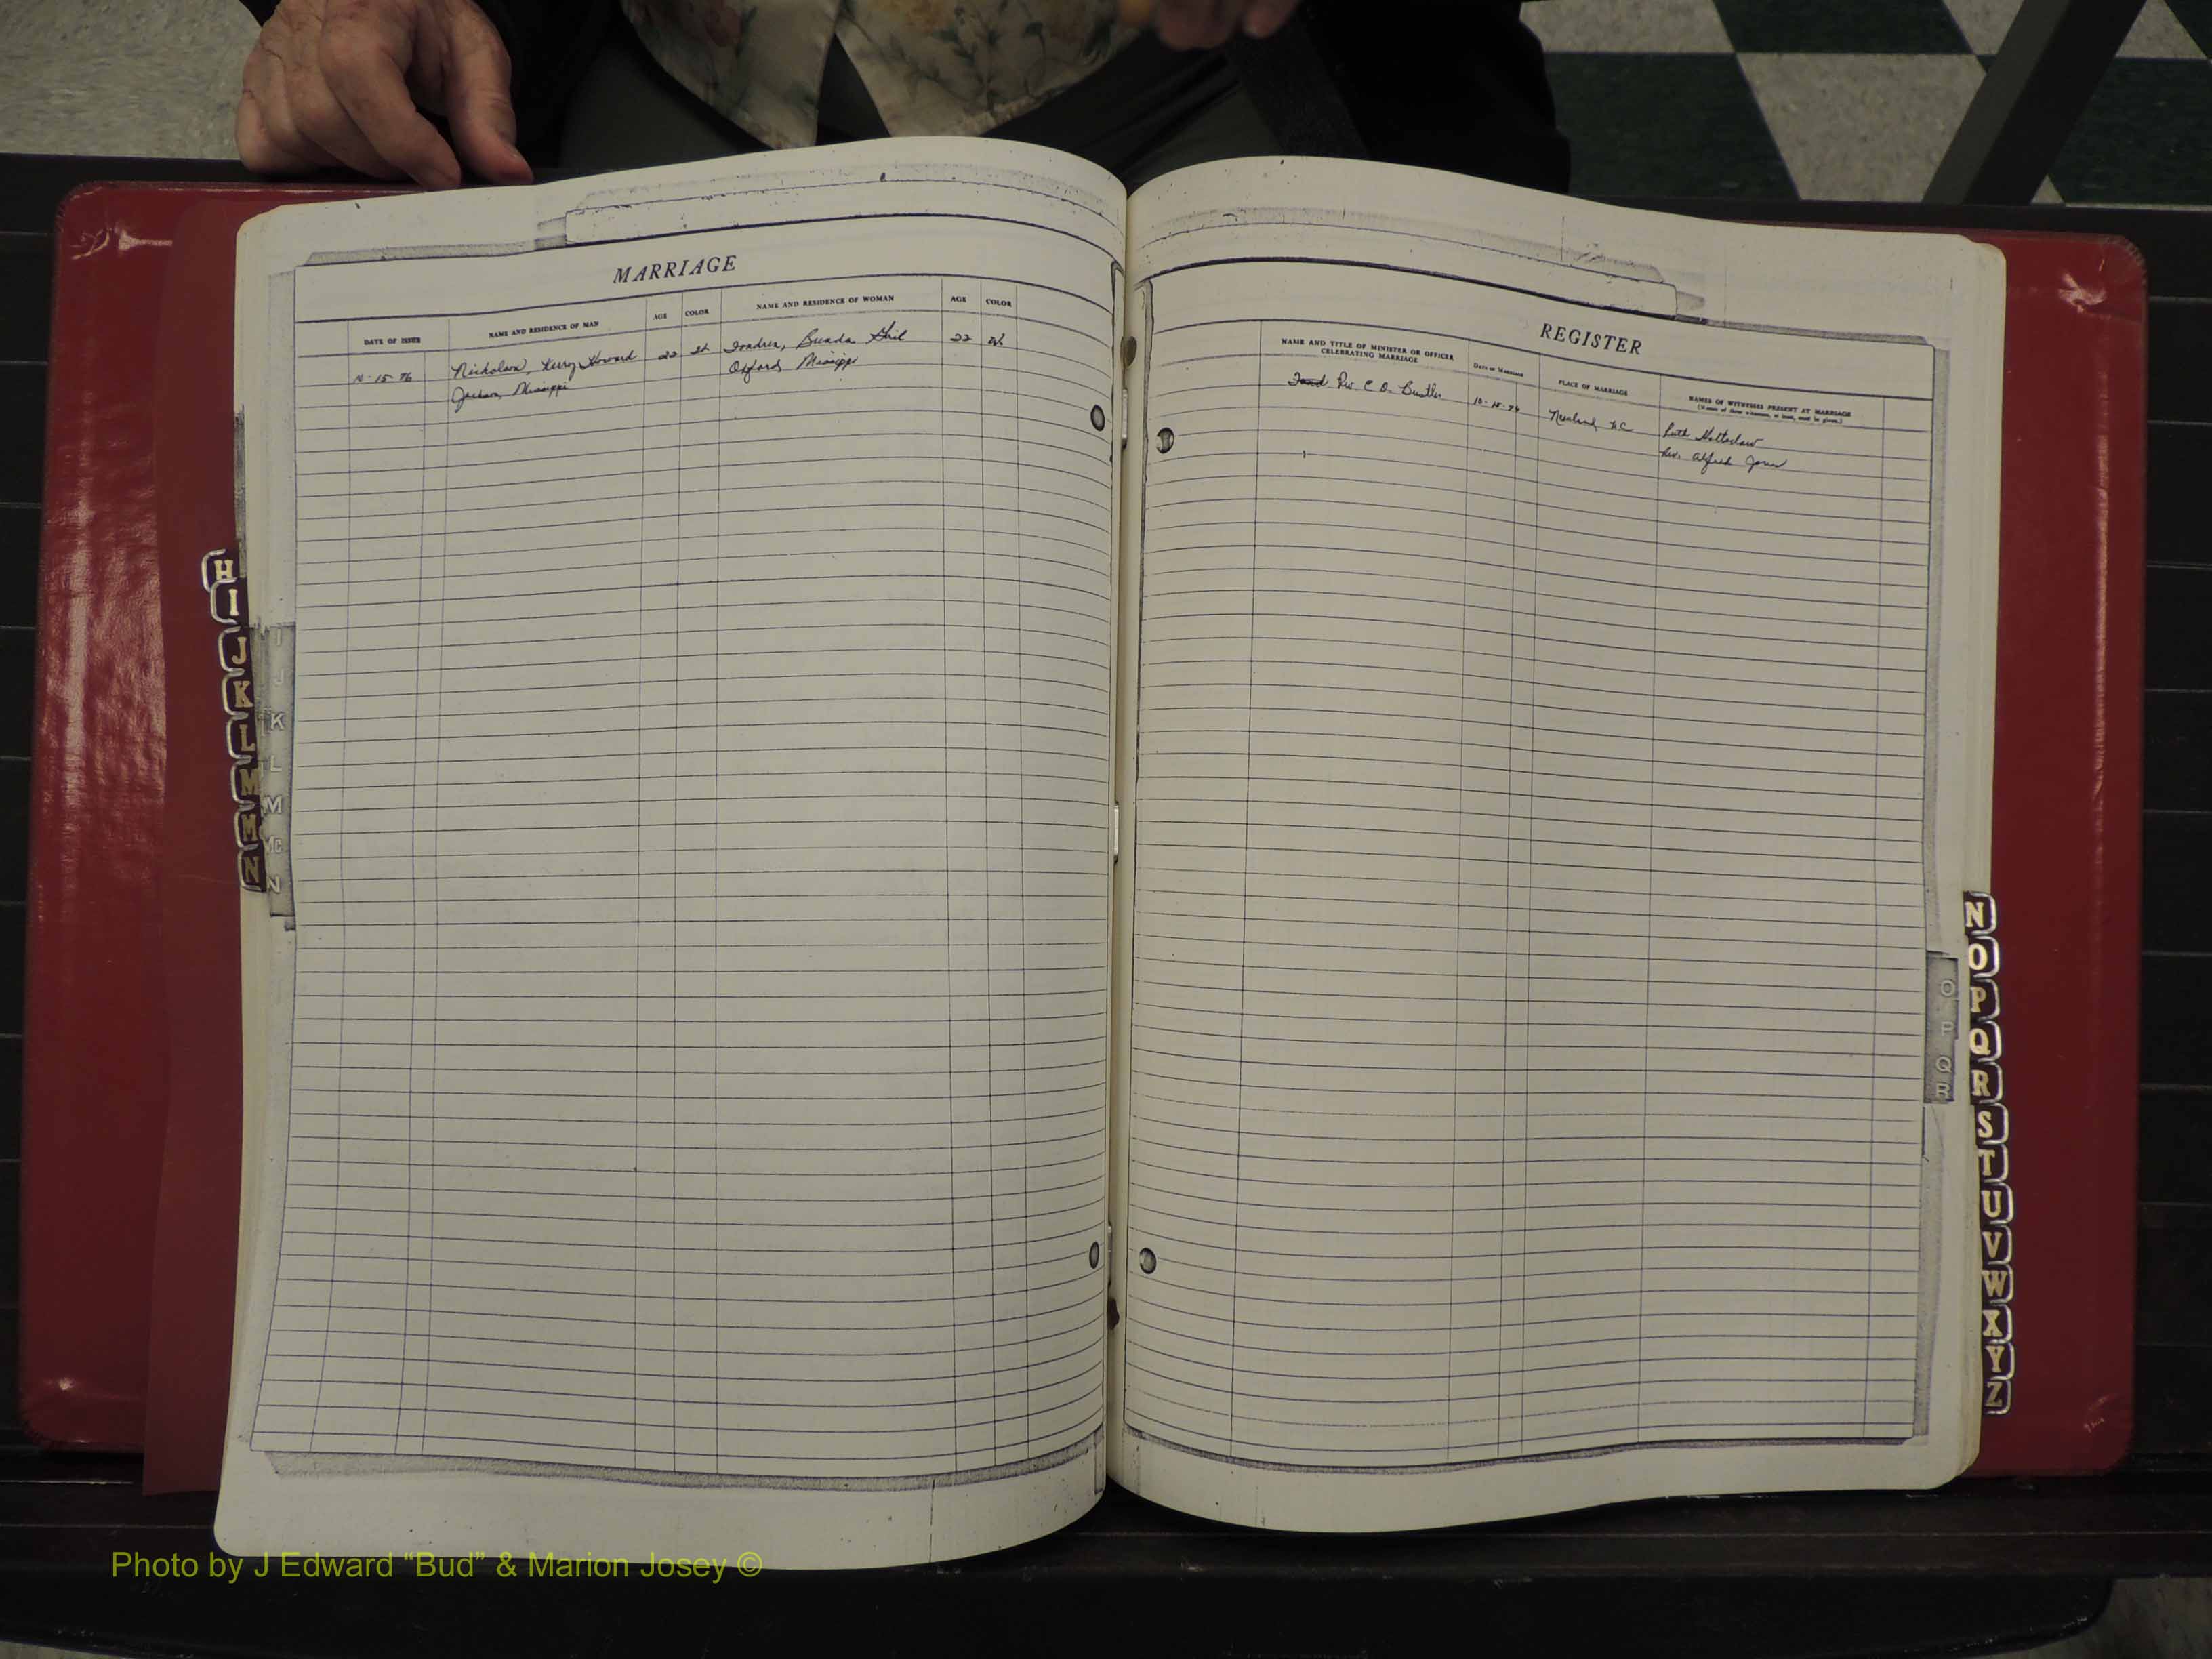 MARRIAGE
DATE OF ISSUE NAME AND RESIDENCE OF MAN AGE COLOR NAME AND RESIDENCE OF WOMAN AGE COLOR
10-15-76 Nicholson, Kerry Howard 22 22
Jackson, Missippi Oxford, Missippi
REGISTER
NAME AND TITLE OF MINISTER OR OFFICER CELEBRATING MARRIAGE DATE OF MARRIAGE PLACE OF MARRIAGE NAMES OF WITNESSES PRESENT AT MARRIAGE
(Names of three witnesses, at least, must be given.)
Rev C B. 10-15-76 Newland NC Ruth
Rev. Alfred Jones
H
I
J
K
L
M
M
N
I
J
K
L
M
MC
N
N
O
P
Q
R
S
T
U
V
W
X
Y
Z
O
P
Q
R
Photo by J Edward “Bud” & Marion Josey ©